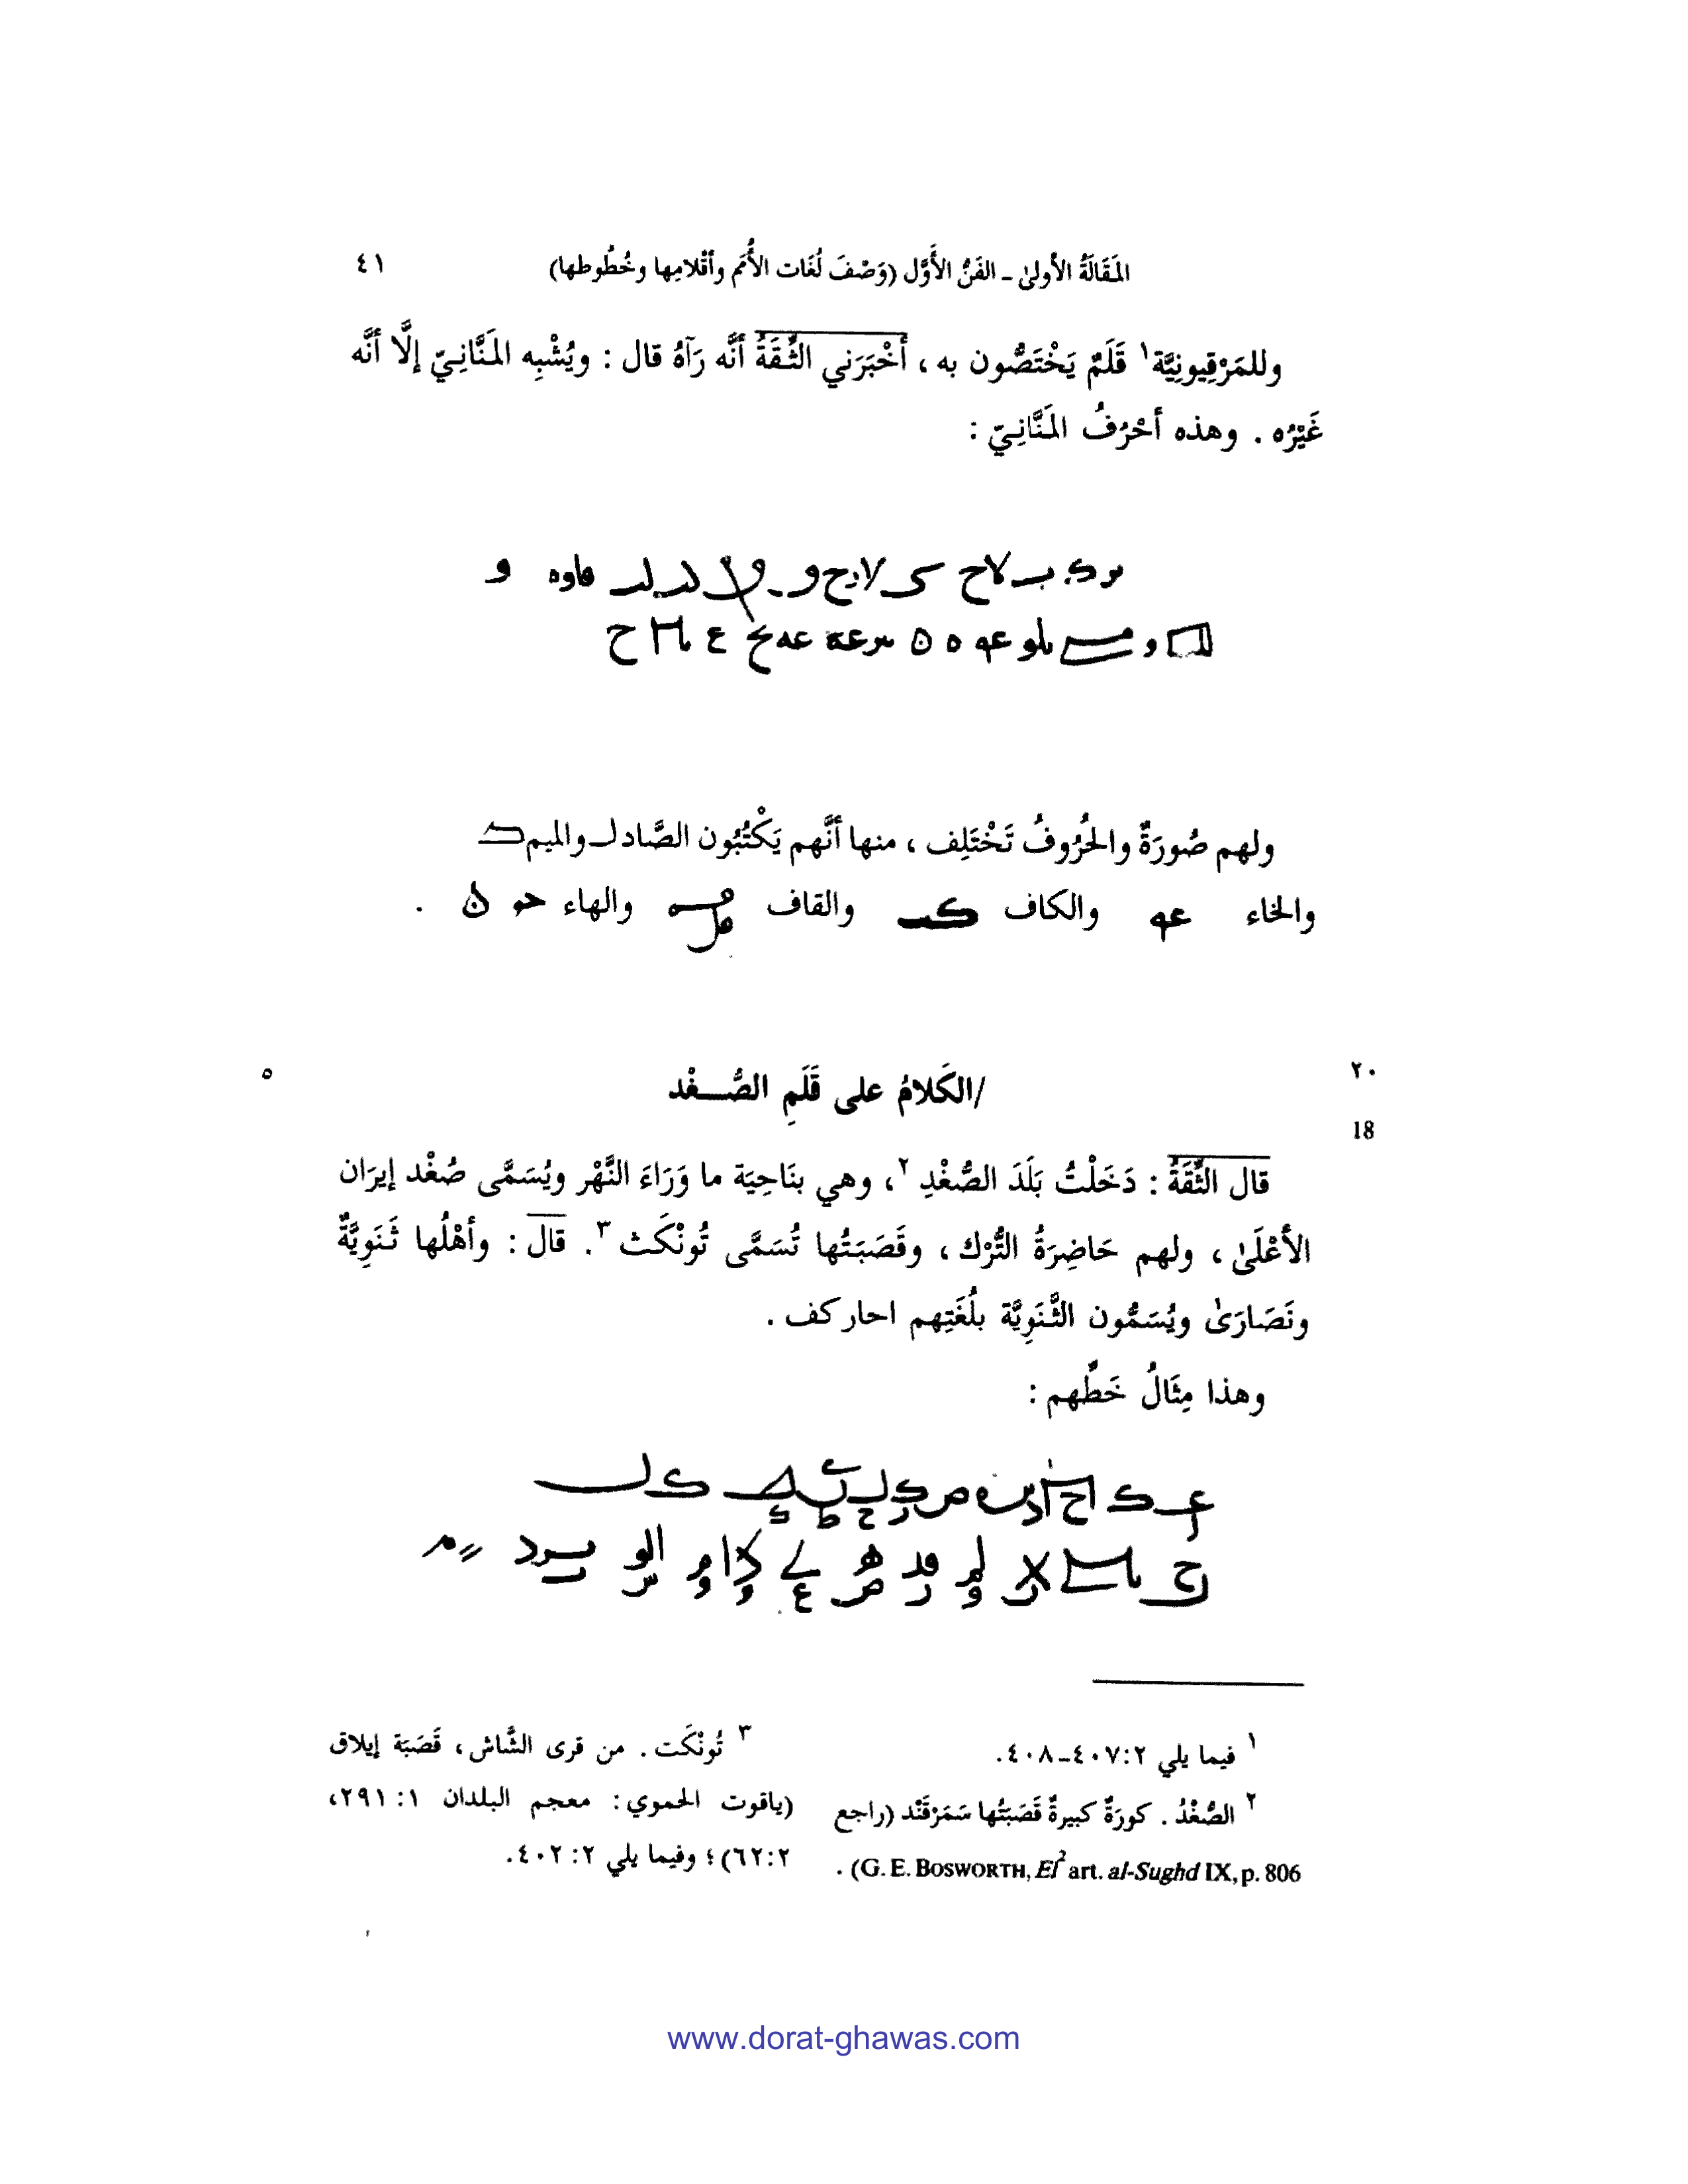 المَقَالَةُ الأولىٰ ـ الفَنُّ الأَوَّل (وَصْفَ لُغَات الأُمَم وأقْلامِها وخُطُوطها)
٤١
وللمَرْقِيونِيَّة١ قَلَمٌ يَخْتَصُّون به ، أَخْبَرَني الثِّقَةُ أنَّه رَآهُ قال : ويُشْبِه المَنَّانِيّ إلَّا أنَّه
غَيْرُه . وهذه أحْرُفُ المَنَّانِيّ :
ولهم صُورَةٌ والحُرُوفُ تَخْتَلِف ، منها أنَّهم يَكْتُبُون الصَّاد والميم
والخاء والكاف والقاف والهاء .
٢٠
/الكَلامُ على قَلَمِ الصُّـغْد
٥
18
قال الثِّقَةُ : دَخَلْتُ بَلَدَ الصُّغْدِ٢، وهي بنَاحِيَة ما وَرَاءَ النَّهْر ويُسَمَّى صُغْد إيرَان
الأَعْلَىٰ ، ولهم حَاضِرَةُ التُّرْك ، وقَصَبَتُها تُسَمَّى تُونْكَث٣. قال : وأهْلُها ثَنَوِيَّةٌ
ونَصَارَىٰ ويُسَمُّون الثَّنَوِيَّة بلُغَتِهم احاركف .
وهذا مِثَالُ خَطِّهم :
١ فيما يلي ٢:٤٠٧-٤٠٨.
٢ الصُّغْدُ . كورَةٌ كبيرةٌ قَصَبَتُها سَمَرْقَنْد (راجع
G. E. BOSWORTH, EI² art. al-Sughd IX, p. 806) .
٣ تُونْكَت . من قرى الشَّاش، قَصَبَة إيلاق
(ياقوت الحموي: معجم البلدان ١: ٢٩١،
٢:٦٢)؛ وفيما يلي ٢: ٤٠٢.
www.dorat-ghawas.com